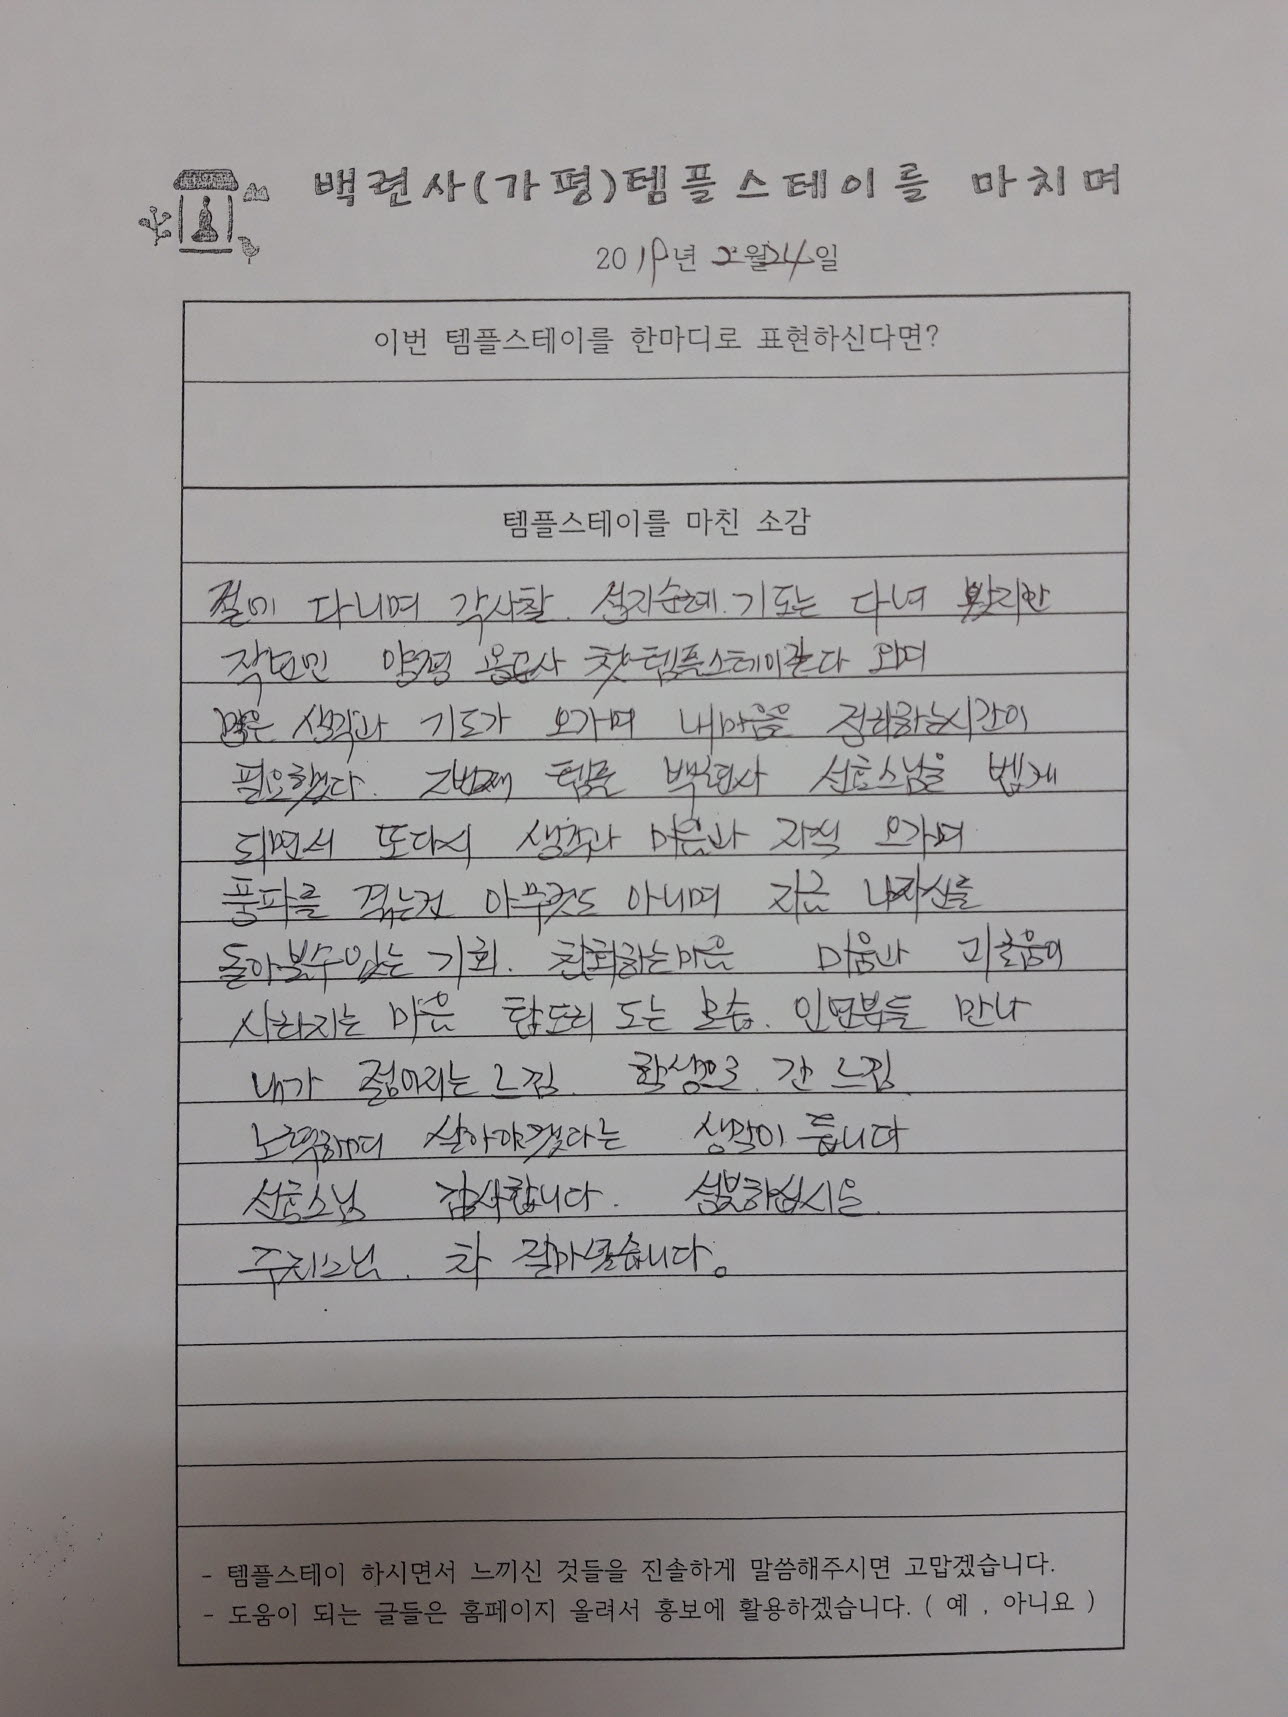 백련사(가평)템플스테이를 마치며
2019년 2월24일
이번 템플스테이를 한마디로 표현하신다면?
템플스테이를 마친 소감
절에 다니며 각사찰. 성지순례. 기도는 다녀 봤지만
작년인 양평 용문사 첫템플스테이 와며
많은 생각과 기도가 오가며 내마음을 정리하는시간이
필요했다. 2번째 템플 백련사 선효스님을 벱게
되면서 또다시 생각과 마음과 지식 오가며
풍파를 겪는건 아무것도 아니며 지금 나자신을
돌아볼수있는 기회. 참회하는마음 미움과 괴로움이
사라지는 마음 탑도리 도는 모습. 인연분들 만나
내가 젊어지는 느낌. 학생으로 간 느낌.
노력하며 살아야겠다는 생각이 듭니다
선효스님 감사합니다. 성불하십시요.
주지스님. 차 잘마셨습니다。
- 템플스테이 하시면서 느끼신 것들을 진솔하게 말씀해주시면 고맙겠습니다.
- 도움이 되는 글들은 홈페이지 올려서 홍보에 활용하겠습니다. ( 예 , 아니요 )